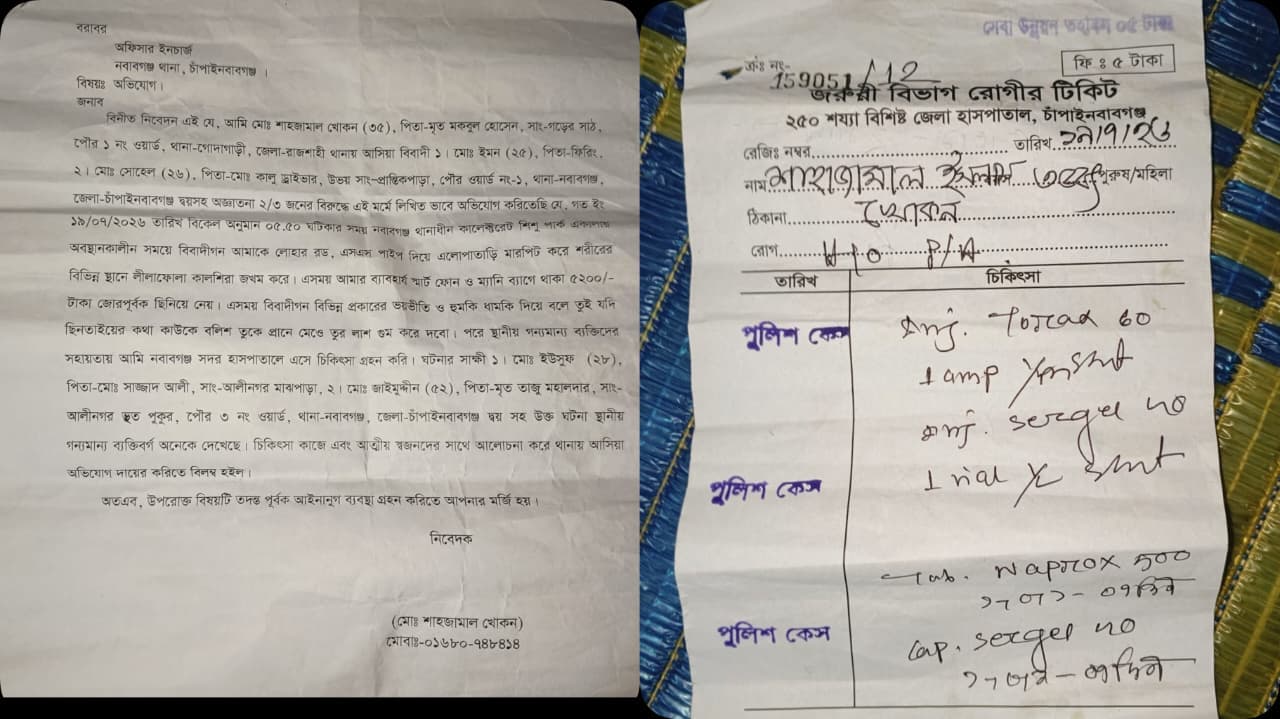 বরাবর
অফিসার ইনচার্জ
নবাবগঞ্জ থানা, চাঁপাইনবাবগঞ্জ ।
বিষয়ঃ অভিযোগ।
জনাব
বিনীত নিবেদন এই যে, আমি মোঃ শাহজামাল খোকন (৩৫), পিতা-মৃত মকবুল হোসেন, সাং-গড়ের সাঠ,
পৌর ১ নং ওয়ার্ড, থানা-গোদাগাড়ী, জেলা-রাজশাহী থানায় আসিয়া বিবাদী ১। মোঃ ইমন (২৫), পিতা-ফিরিং,
২। মোঃ সোহেল (২৬), পিতা-মোঃ কালু ড্রাইভার, উভয় সাং-প্রান্তিকপাড়া, পৌর ওয়ার্ড নং-১, থানা-নবাবগঞ্জ,
জেলা-চাঁপাইনবাবগঞ্জ দ্বয়সহ অজ্ঞাতনা ২/৩ জনের বিরুদ্ধে এই মর্মে লিখিত ভাবে অভিযোগ করিতেছি যে, গত ইং
১৯/০৭/২০২৬ তারিখ বিকেল অনুমান ০৫.৫০ ঘটিকার সময় নবাবগঞ্জ থানাধীন কালেক্টরেট শিশু পার্ক এলাকায়
অবস্থানকালীন সময়ে বিবাদীগন আমাকে লোহার রড, এসএস পাইপ দিয়ে এলোপাতাড়ি মারপিট করে শরীরের
বিভিন্ন স্থানে লীলাফোলা কালশিরা জখম করে। এসময় আমার ব্যাবহার্য স্মার্ট ফোন ও ম্যানি ব্যাগে থাকা ৫২০০/-
টাকা জোরপূর্বক ছিনিয়ে নেয়। এসময় বিবাদীগন বিভিন্ন প্রকারের ভয়ভীতি ও হুমকি ধামকি দিয়ে বলে তুই যদি
ছিনতাইয়ের কথা কাউকে বলিশ তুকে প্রানে মেগু তুর লাশ গুম করে দেবো। পরে স্থানীয় গন্যমান্য ব্যক্তিদের
সহায়তায় আমি নবাবগঞ্জ সদর হাসপাতালে এসে চিকিৎসা গ্রহন করি। ঘটনার সাক্ষী ১। মোঃ ইউসুফ (২৮),
পিতা-মোঃ সাজ্জাদ আলী, সাং-আলীনগর মাঝপাড়া, ২। মোঃ জাইমুদ্দীন (৫২), পিতা-মৃত তাজু মহালদার, সাং-
আলীনগর ভূত পুকুর, পৌর ৩ নং ওয়ার্ড, থানা-নবাবগঞ্জ, জেলা-চাঁপাইনবাবগঞ্জ দ্বয় সহ উক্ত ঘটনা স্থানীয়
গন্যমান্য ব্যক্তিবর্গ অনেকে দেখেছে। চিকিৎসা কাজে এবং আত্মীয় স্বজনদের সাথে আলোচনা করে থানায় আসিয়া
অভিযোগ দায়ের করিতে বিলম্ব হইল।
অতএব, উপরোক্ত বিষয়টি তদন্ত পূর্বক আইনানুগ ব্যবস্থা গ্রহন করিতে আপনার মর্জি হয়।
নিবেদক
(মোঃ শাহজামাল খোকন)
মোবাঃ-০১৬৮০-৭৪৮৪১৪
০৫ টাকা
ফি ঃ ৫ টাকা
ক্রঃ নং-
159051/12
জরুরী বিভাগ রোগীর টিকিট
২৫০ শয্যা বিশিষ্ট জেলা হাসপাতাল, চাঁপাইনবাবগঞ্জ
রেজিঃ নম্বর
তারিখ
নাম শাহজামাল পুরুষ/মহিলা
ঠিকানা খোকন
রোগ H/o P/A
তারিখ চিকিৎসা
পুলিশ কেস
Inj. Torax 60
1 amp
Inj. sergel 40
পুলিশ কেস
1 vial
Tab. Naprox 500
পুলিশ কেস
Cap. Sergel 40